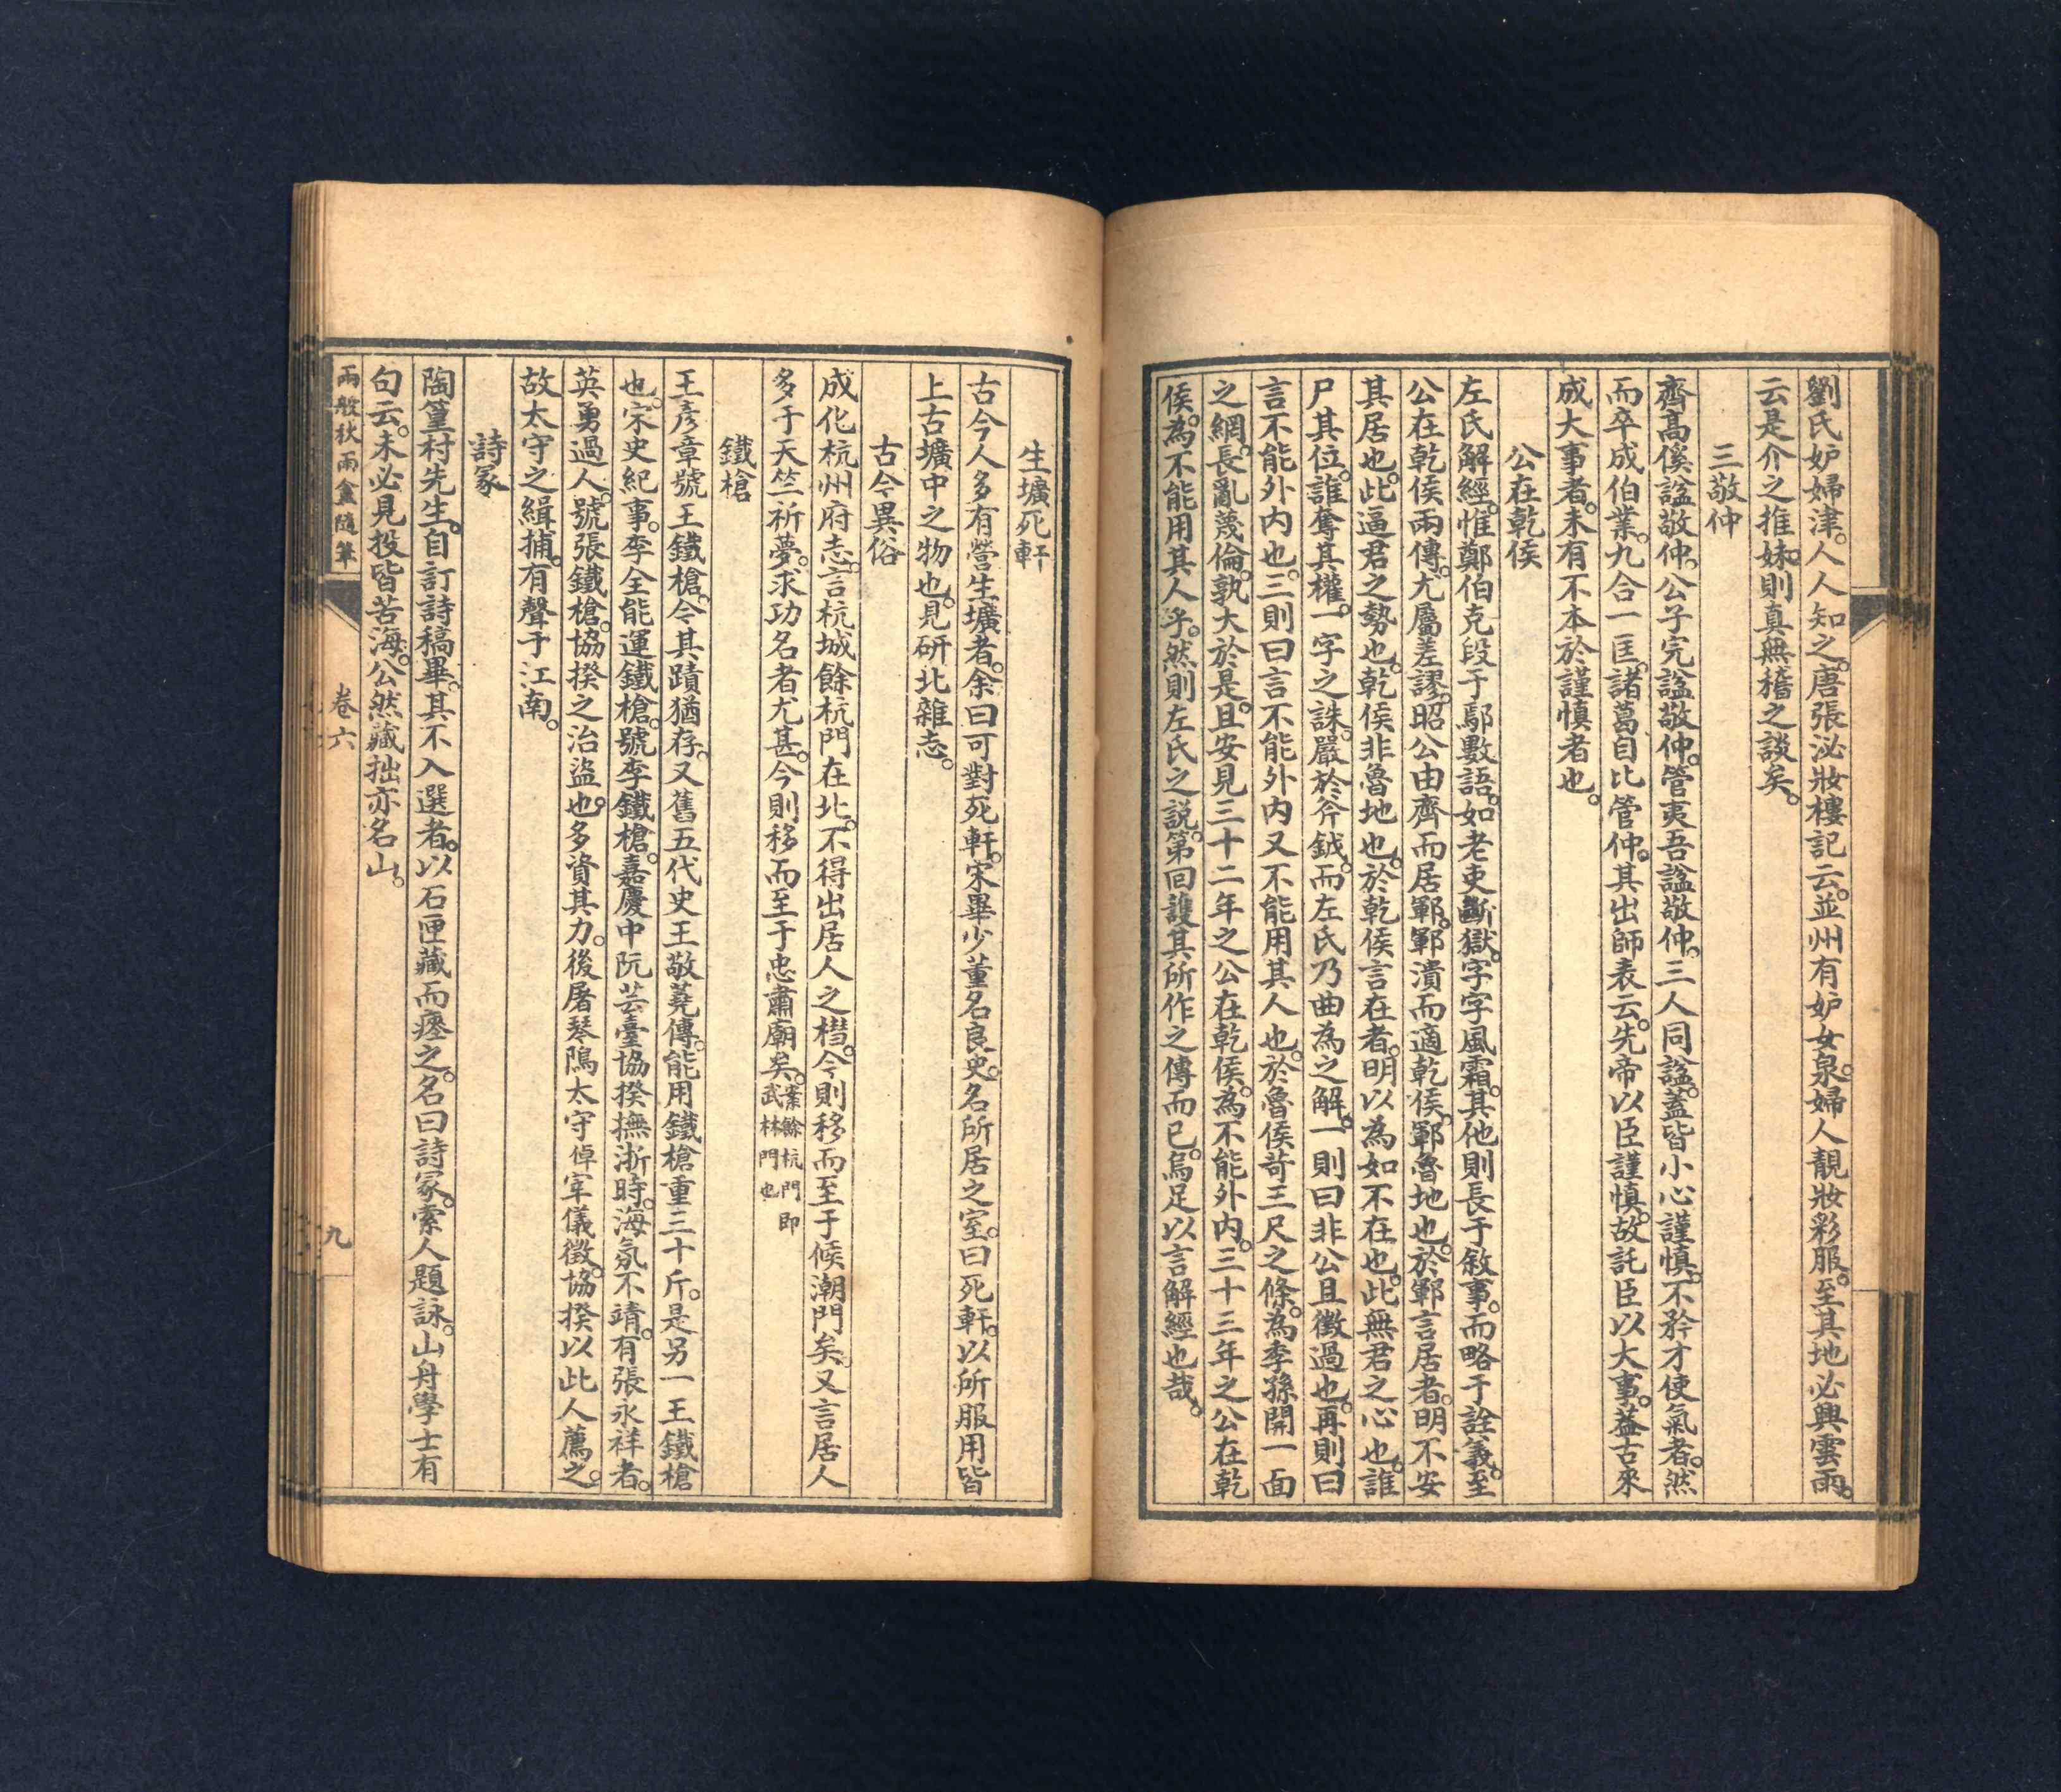 劉氏妒婦津。人人知之。唐張泌妝樓記云。並州有妒女泉。婦人靚妝彩服。至其地必興雲雨。
云是介之推妹。則真無稽之談矣。
三敬仲
齊高傒諡敬仲。公子完諡敬仲。管夷吾諡敬仲。三人同諡。蓋皆小心謹慎。不矜才使氣者。然
而卒成伯業。九合一匡。諸葛自比管仲。其出師表云。先帝以臣謹慎。故託臣以大事。益古來
成大事者。未有不本於謹慎者也。
公在乾侯
左氏解經。惟鄭伯克段于鄢數語。如老吏斷獄。字字風霜。其他則長于敘事。而略于詮義。至
公在乾侯兩傳。尤屬差謬。昭公由齊而居鄆。鄆潰而適乾侯。鄆魯地也。於鄆言居者。明不安
其居也。此逼君之勢也。乾侯非魯地也。於乾侯言在者。明以為如不在也。此無君之心也。誰
尸其位。誰奪其權。一字之誅。嚴於斧鉞。而左氏乃曲為之解。一則曰非公且徵過也。再則曰
言不能外內也。三則曰言不能外內又不能用其人也。於魯侯苛三尺之條。為季孫開一面
之網。長亂蔑倫。孰大於是。且安見三十二年之公在乾侯。為不能外內。三十三年之公在乾
侯。為不能用其人乎。然則左氏之說。第回護其所作之傳而已。烏足以言解經也哉。
生壙死軒
古今人多有營生壙者。余曰可對死軒。宋畢少董名良史。名所居之室。曰死軒。以所服用皆
上古壙中之物也。見研北雜志。
古今異俗
成化杭州府志。言杭城餘杭門在北。不得出居人之槥。今則移而至于候潮門矣。又言居人
多于天竺祈夢。求功名者尤甚。今則移而至于忠肅廟矣。案餘杭門即武林門也
鐵槍
王彥章號王鐵槍。今其蹟猶存。又舊五代史王敬蕘傳。能用鐵槍重三十斤。是另一王鐵槍
也。宋史紀事。李全能運鐵槍。號李鐵槍。嘉慶中阮芸臺協揆撫浙時。海氛不靖。有張永祥者。
英勇過人。號張鐵槍。協揆之治盜也。多資其力。後屠琴隖太守倬宰儀徵。協揆以此人薦之。
故太守之緝捕。有聲于江南。
詩冢
陶篁村先生。自訂詩稿畢。其不入選者。以石匣藏而瘞之。名曰詩冢。索人題詠。山舟學士有
句云。未必見投皆苦海。公然藏拙亦名山。
兩般秋雨盦隨筆
卷六
九